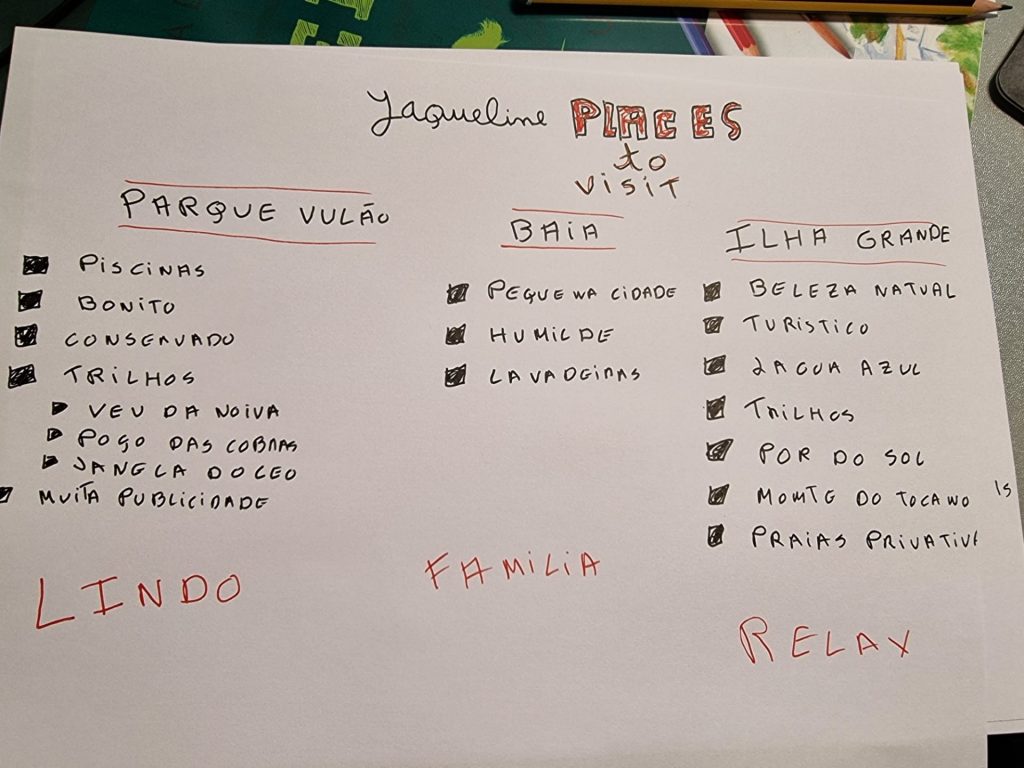 Yaqueline PLACES
to
VISIT
PARQUE VULÃO
PISCINAS
BONITO
CONSERVADO
TRILHOS
VEU DA NOIVA
POÇO DAS COBRAS
JANELA DO CEO
MUITA PUBLICIDADE
LINDO
BAIA
PEQUENA CIDADE
HUMILDE
LAVADEIRAS
FAMILIA
ILHA GRANDE
BELEZA NATURAL
TURISTICO
LAGOA AZUL
TRILHOS
POR DO SOL
MOMTE DO TOCANO
PRAIAS PRIVATIV
RELAX
IS